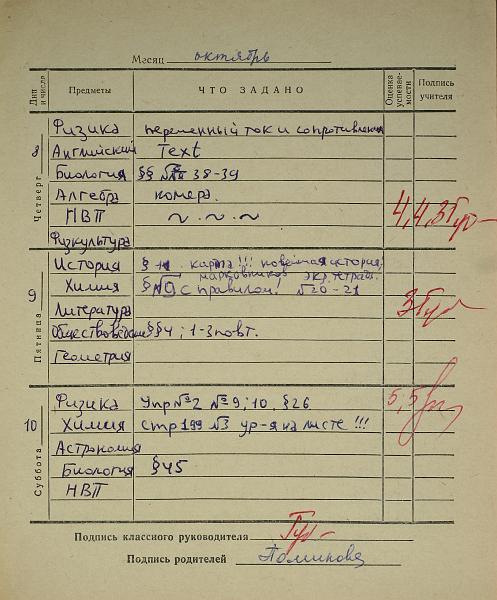 Месяц октябрь
Дни и числа Предметы ЧТО ЗАДАНО Оценка успеваемости Подпись учителя
Четверг 8
Физика переменный ток и сопротивления
Английский Text
Биология §§ 38-39
Алгебра номера.
НВП ~ . ~ . ~
4,4,3
Физкультура
Пятница 9
История § карта!!! новейшая история,
Химия § с правилом! №20-21
Литература 3
Обществоведение §§4; 1-3 повт.
Геометрия
Суббота 10
Физика Упр №2 №9; 10, §26 5,5
Химия Стр 199 №3 ур-я на листе !!!
Астрономия
Биология §45
НВП
Подпись классного руководителя
Подпись родителей